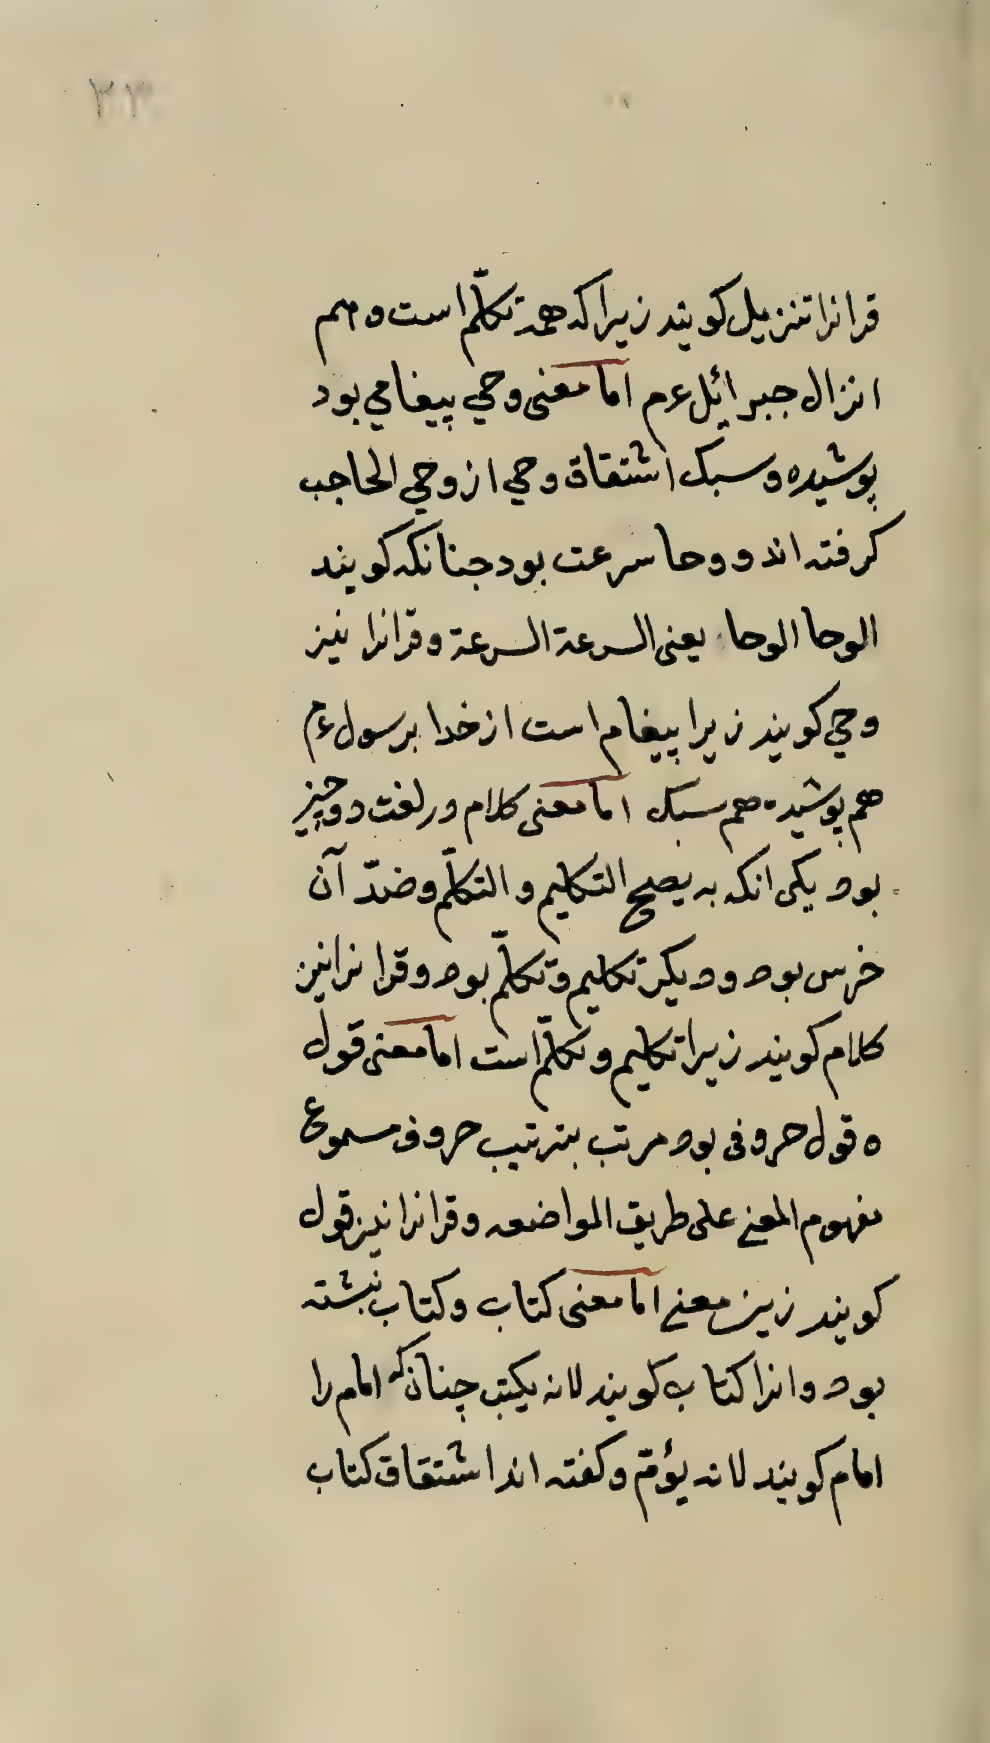 ۳۳
قرانرا تنزیل کویند زیرا که همه تکلّم است و هم
انزال جبرائیل ءم اما معنی وحی پیغامی بود
پوشیده و سبک اشتقاق وحی از وحی الحاجب
کرفته اند و وحا سرعت بود جنانکه کویند
الوحا الوحا یعنی السرعة السرعة و قرانرا نیز
وحی کویند زیرا پیغام است از خدا برسول ءم
هم پوشیده هم سبک اما معنی کلام در لغت دو چیز
بود یکی انکه به یصح التکلیم و التکلّم و ضدّ آن
خرس بود و دیکر تکلیم و تکلّم بود و قرانرا نیز
کلام کویند زیرا تکلیم و تکلّم است اما معنی قول
ه قول حروفی بود مرتب بترتیب حروف مسموع
مفهوم المعنی علی طریق المواضعه و قرانرا نیز قول
کویند زین معنی اما معنی کتاب و کتاب نبشته
بود و انرا کتاب کویند لانه یکتب چنان که امام را
امام کویند لانه یؤمّ و کفته اند اشتقاق کتاب